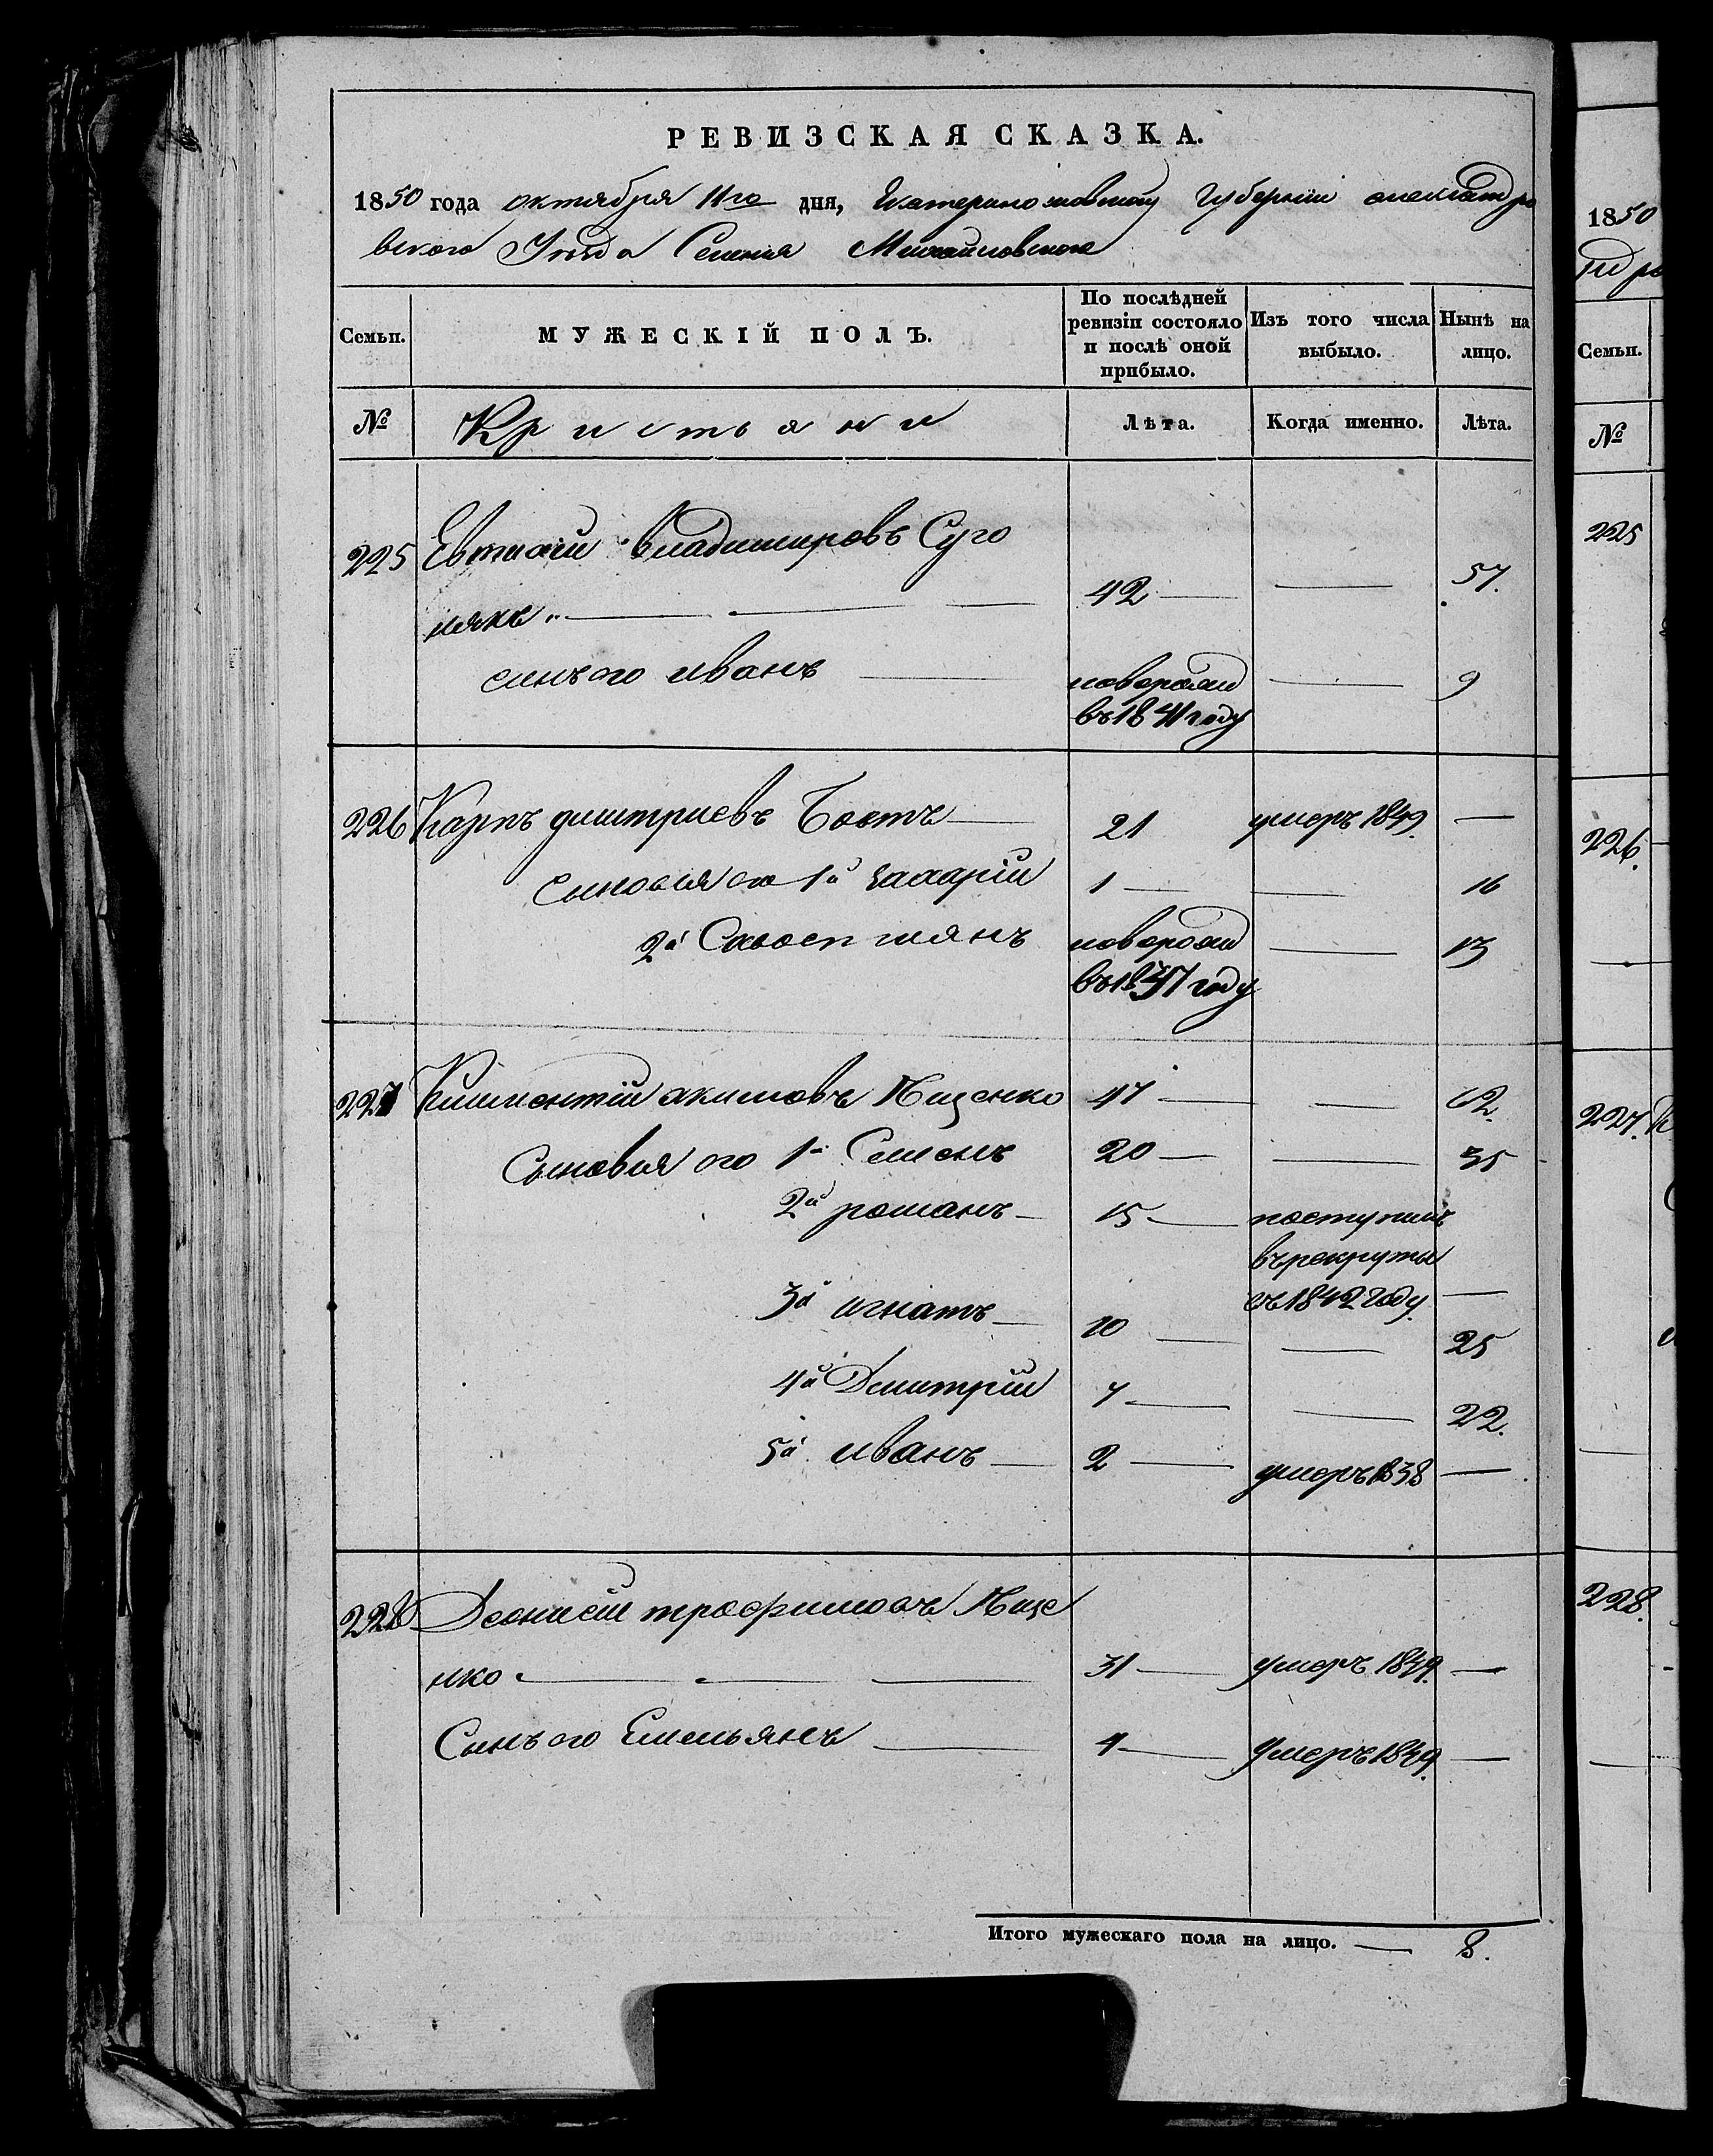 РЕВИЗСКАЯ СКАЗКА.
1850 года октября 11го дня, Екатеринославской Губернии александро
вского Уезда Селения Михайловского
Семьи.
МУЖЕСКІЙ ПОЛЪ.
По послѣдней ревизіи состояло и послѣ оной прибыло.
Изъ того числа выбыло.
Нынѣ на лицо.
№ Кристьяни Лѣта. Когда именно. Лѣта.
225 Евтихи владимировъ Суго
някъ 42 57.
синъ его иванъ новорожд 9
въ 1841 году
226 Карпъ дмитриевъ 21 умеръ 1849
Сыновья его 1й Захарiи 1 16
2й новорожд 13
въ 1837 году
227 акимовъ Пищенко 47 62.
Сыновья его 1й Семенъ 20 35
2й романъ 15 поступилъ
въ рекруты
въ 1842 году.
3й игнатъ 10 25
4й Дмитрiи 7 22.
5й иванъ 2 умеръ 1838
228 Деонисiи трофимовъ Пище
нко 31 умеръ 1849.
Сынъ его Емельянъ 4 Умеръ 1849.
Итого мужескаго пола на лицо. 8.
1850
Семьи.
№
225
226.
227.
228.